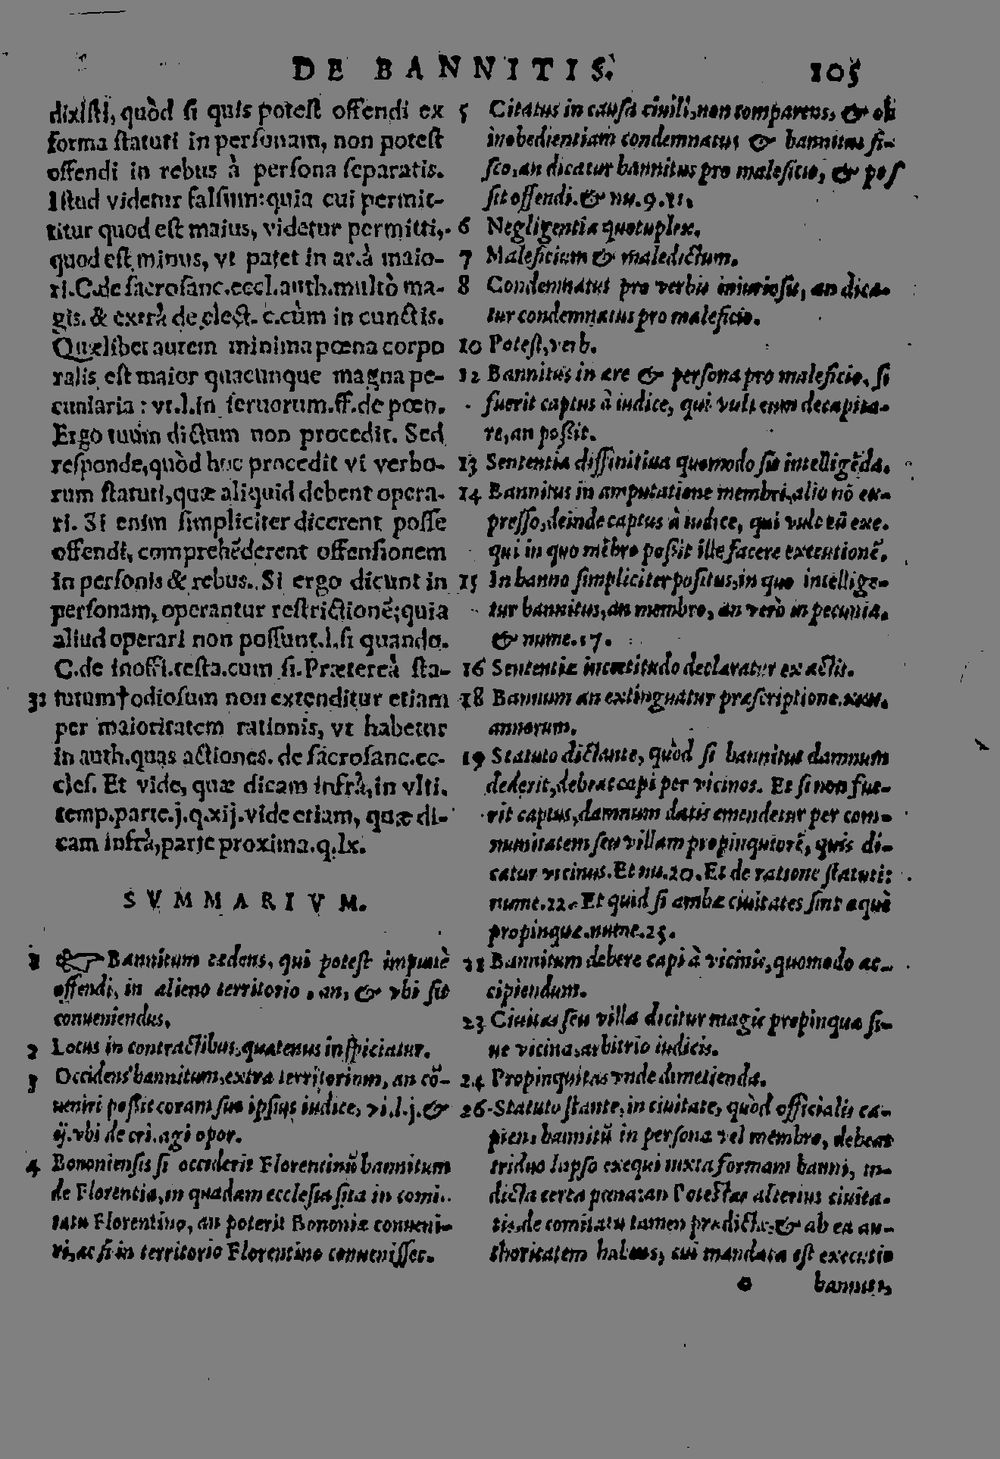 DE BANNITIS. 105
dixisti, quòd si quis potest offendi ex
forma statuti in personam, non potest
offendi in rebus à persona separatis.
Istud videtur falsum: quia cui permit-
titur quod est maius, videtur permitti,
quod est minus, vt patet in ar. à maio-
ri. C. de sacrosanc. eccl. auth. multò ma-
gis. & extrà de elect. c. cùm in cunctis.
Quælibet autem minima pœna corpo
ralis est maior quacunque magna pe-
cuniaria: vt. l. in seruorum. ff. de pœn.
Ergo tuum dictum non procedit. Sed
responde, quòd hoc procedit vi verbo-
rum statuti, quæ aliquid debent opera-
ri. Si enim simpliciter dicerent posse
offendi, comprehēderent offensionem
in personis & rebus. Si ergo dicunt in
personam, operantur restrictionē; quia
aliud operari non possunt. l. si quando.
C. de inoffi. testa. cum si. Prætereà sta-
31 tutum † odiosum non extenditur etiam
per maioritatem rationis, vt habetur
in auth. quas actiones. de sacrosanc. ec-
cles. Et vide, quæ dicam infrà, in vlti.
temp. parte. j. q. xij. vide etiam, quæ di-
cam infrà, parte proxima. q. lx.
SVMMARIVM.
1 ☞ Bannitum cedens, qui potest impunè
offendi, in alieno territorio, an, & vbi sit
conueniendus.
2 Locus in contractibus, quatenus inspiciatur.
3 Occidens bannitum, extra territorium, an cō-
ueniri possit coram suo ipsius iudice, vt. l. j. &
ij. vbi de cri. agi opor.
4 Bononiensis si occiderit Florentinū bannitum
de Florentia, in quadam ecclesia sita in comi-
tatu Florentino, an poterit Bononiæ conueni-
ri, ac si in territorio Florentino conuenisset.
5 Citatus in causa ciuili, non comparens, & ob
inobedientiam condemnatus & bannitus fi-
sco, an dicatur bannitus pro maleficio, & pos
sit offendi. & nu. 9. 11.
6 Negligentia quotuplex.
7 Maleficium & maledictum.
8 Condemnatus pro verbis iniuriosis, an dica-
tur condemnatus pro maleficio.
10 Potest, verb.
12 Bannitus in ære & persona pro maleficio, si
fuerit captus à iudice, qui vult eum decapita-
re, an possit.
13 Sententia diffinitiua quomodo sit intelligēda.
14 Bannitus in amputatione membri, alio nō ex-
presso, deinde captus à iudice, qui vult eū exe.
qui in quo mēbro possit ille facere executionē.
15 In banno simpliciter positus, in quo intellige-
tur bannitus, an membro, an verò in pecunia.
& nume. 17.
16 Sententiæ incertitudo declaratur ex actis.
18 Bannum an extinguatur præscriptione. xxx.
annorum.
19 Statuto dictante, quòd si bannitus damnum
dederit, debeat capi per vicinos. Et si non fue-
rit captus, damnum datis emendetur per com-
munitatem seu villam propinquiorē, quis di-
catur vicinus. Et nu. 20. Et de ratione statuti:
nume. 22. Et quid si ambæ ciuitates sint æquè
propinquæ. nume. 25.
21 Bannitum debere capi à vicinis, quomodo ac-
cipiendum.
23 Ciuitas seu villa dicitur magis propinqua si-
ue vicina, arbitrio iudicis.
24 Propinquitas vnde dimetienda.
26 Statuto stante, in ciuitate, quòd officialis ca-
piens bannitū in persona vel membro, debeat
triduo lapso exequi iuxta formam banni, in-
dicta certa pœna: an Potestas alterius ciuita-
tis, de comitatu tamen prædicta: & ab ea au-
thoritatem habens, cui mandata est executio
o bannitis,